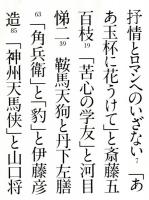 抒情とロマンへのいざない 7 「あ
あ玉杯に花うけて」と斎藤五
百枝 19 「苦心の学友」と河目
悌二 39 鞍馬天狗と丹下左膳
63 「角兵衛」と「豹」と伊藤彦
造 85 「神州天馬俠」と山口将